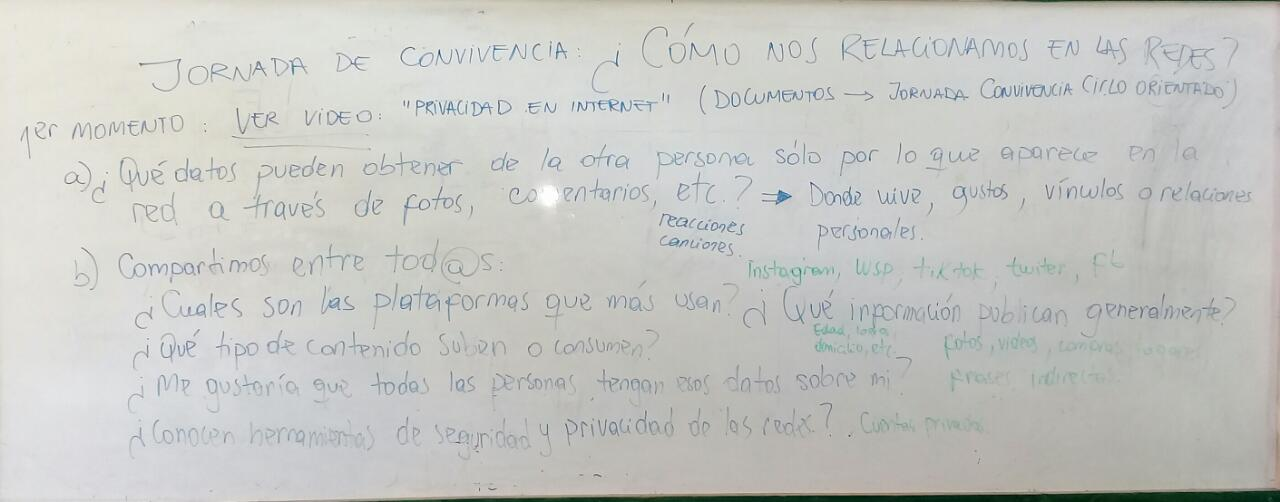 JORNADA DE CONVIVENCIA: ¿CÓMO NOS RELACIONAMOS EN LAS REDES?
1er MOMENTO: VER VIDEO: "PRIVACIDAD EN INTERNET" (DOCUMENTOS → JORNADA CONVIVENCIA CICLO ORIENTADO)
a) ¿Qué datos pueden obtener de la otra persona sólo por lo que aparece en la
red a través de fotos, comentarios, etc.? ⇒ Donde vive, gustos, vínculos o relaciones
reacciones
canciones.
personales.
b) Compartimos entre tod@s:
Instagram, WSP, tiktok, twiter, FL
¿Cuales son las plataformas que más usan? ¿Qué información publican generalmente?
Edad,
domicilio, etc.
¿Qué tipo de contenido suben o consumen?
fotos, videos, lugares
¿Me gustaría que todas las personas tengan esos datos sobre mi?
frases indirectas.
¿Conocen herramientas de seguridad y privacidad de las redes? Cuentas privadas.